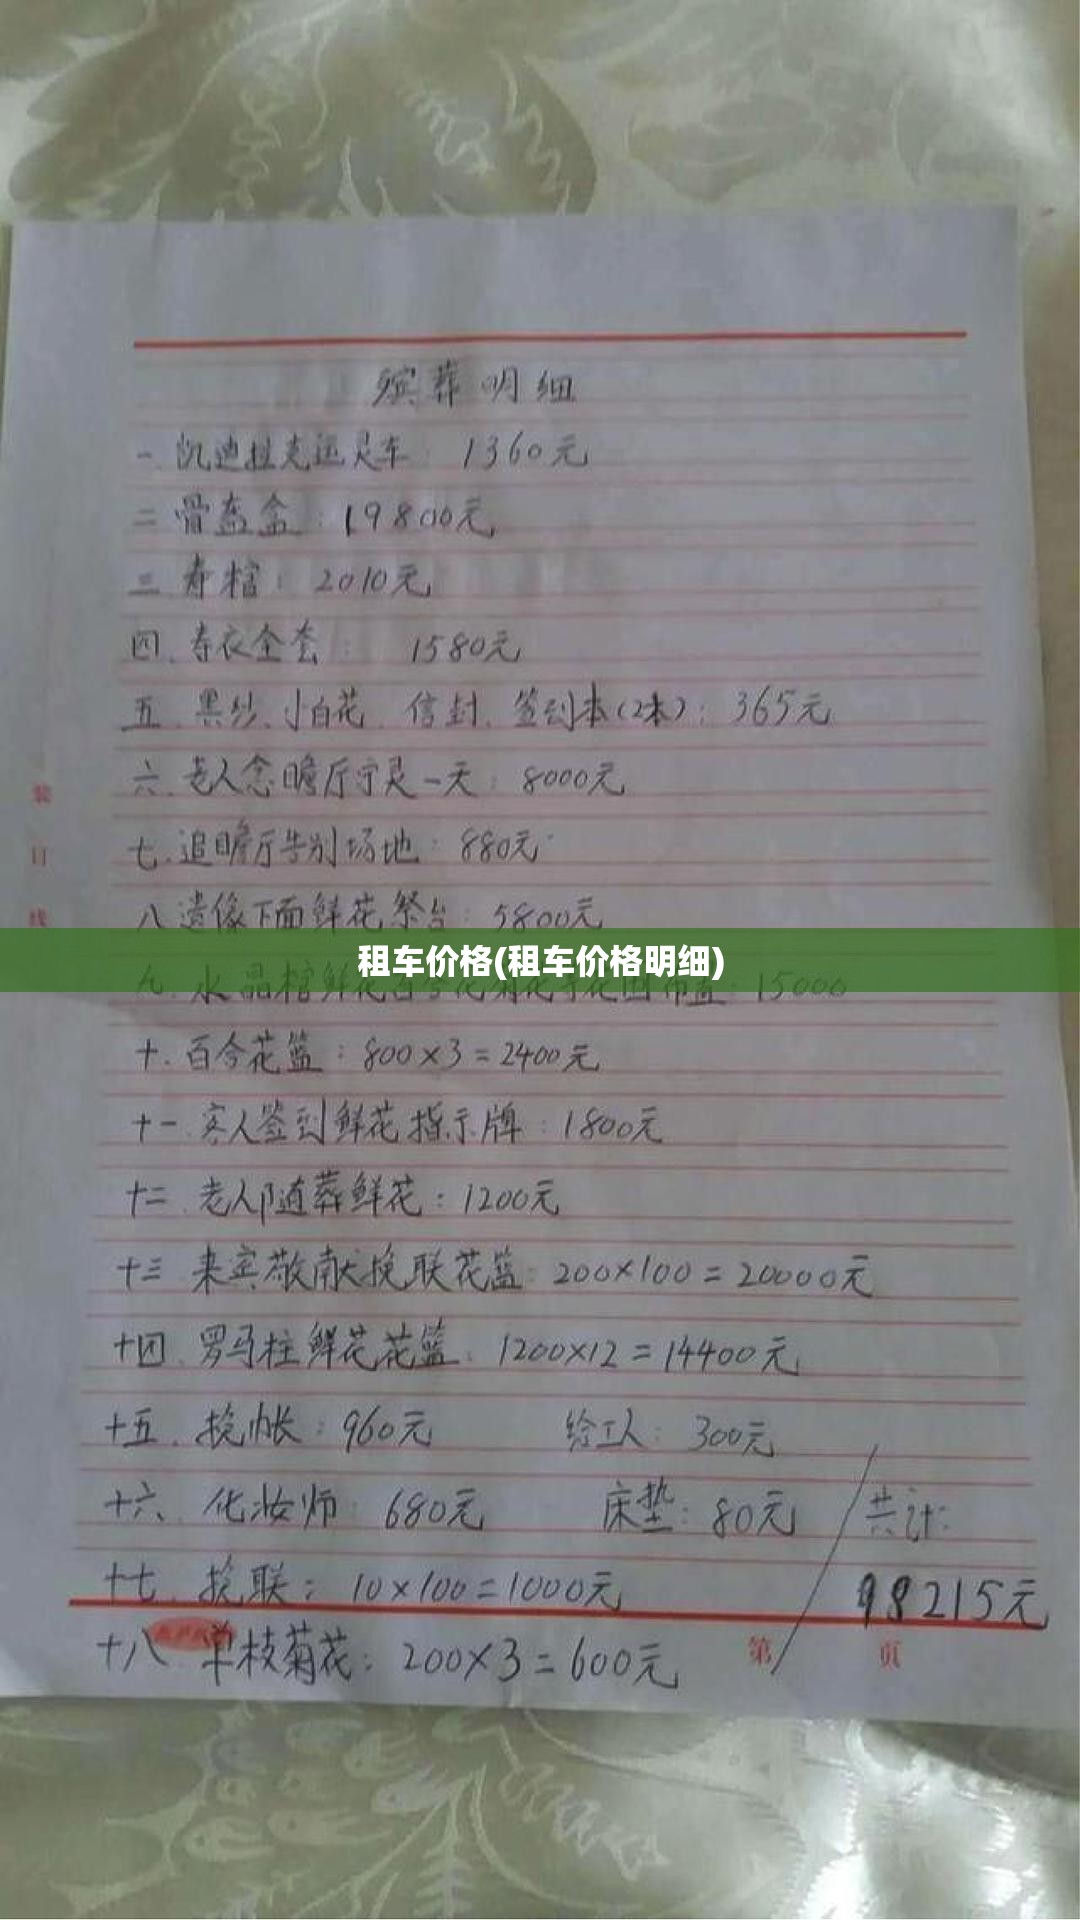 殡葬明细
一.凯迪拉克运灵车: 1360元
二 骨灰盒: 19800元
三 寿棺: 2010元
四.寿衣全套: 1580元
五.黑纱、小白花、信封、签到本(2本): 365元
六.老人念瞻厅守灵一天: 8000元
七.追瞻厅告别场地: 880元
八 遗像下面鲜花祭台: 5800元
租车价格(租车价格明细)
九.水晶棺鲜花百合花 15000
十.百合花篮: 800×3=2400元
十一 客人签到鲜花指示牌: 1800元
十二.老人随葬鲜花: 1200元
十三 来宾敬献挽联花篮: 200×100=20000元
十四.罗马柱鲜花花篮: 1200×12=14400元
十五.挽帐: 960元 给工人: 300元
十六、化妆师: 680元 床垫: 80元 共计:
十七.挽联: 10×100=1000元 98215元
十八 单枝菊花: 200×3=600元
第 页
装
订
线